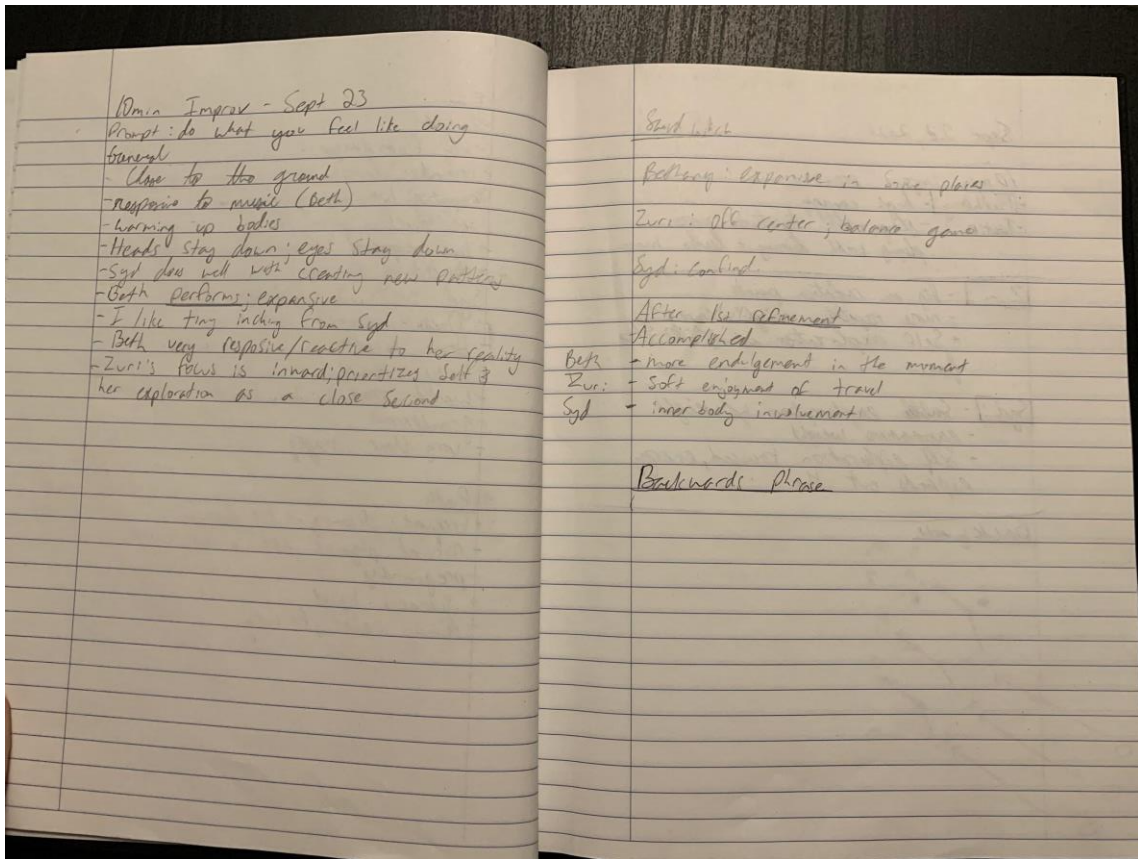 10min Improv - Sept 23
Prompt: do what you feel like doing
General
- Close to the ground
- responsive to music (Beth)
- warming up bodies
- Heads stay down; eyes stay down
- Syd does well with creating new patterns
- Beth performs; expansive
- I like tiny inching from Syd
- Beth very resposive/reactive to her reality
- Zuri's focus is inward; prioritizes self &
her exploration as a close second
Bethany: expansive in some places
Zuri: off center; balance game
Syd: confind
After 1st refinement
Accomplished
Beth - more endulgement in the moment
Zuri - Soft enjoyment of travel
Syd - inner body involvement
Backwards Phrase